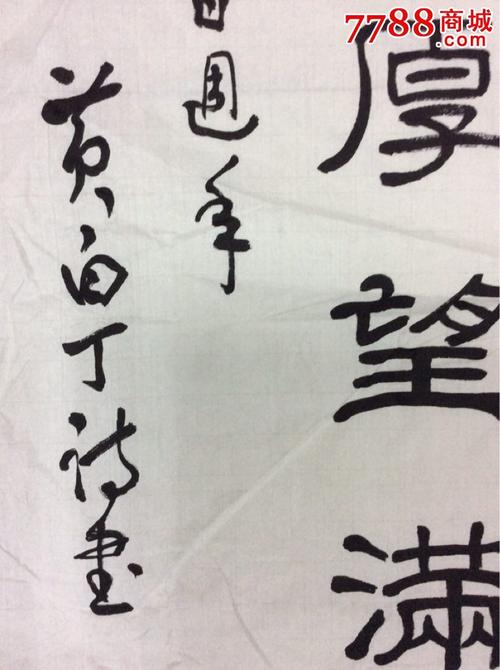 7788商城
.com
厚望滿
週年
黄白丁诗書